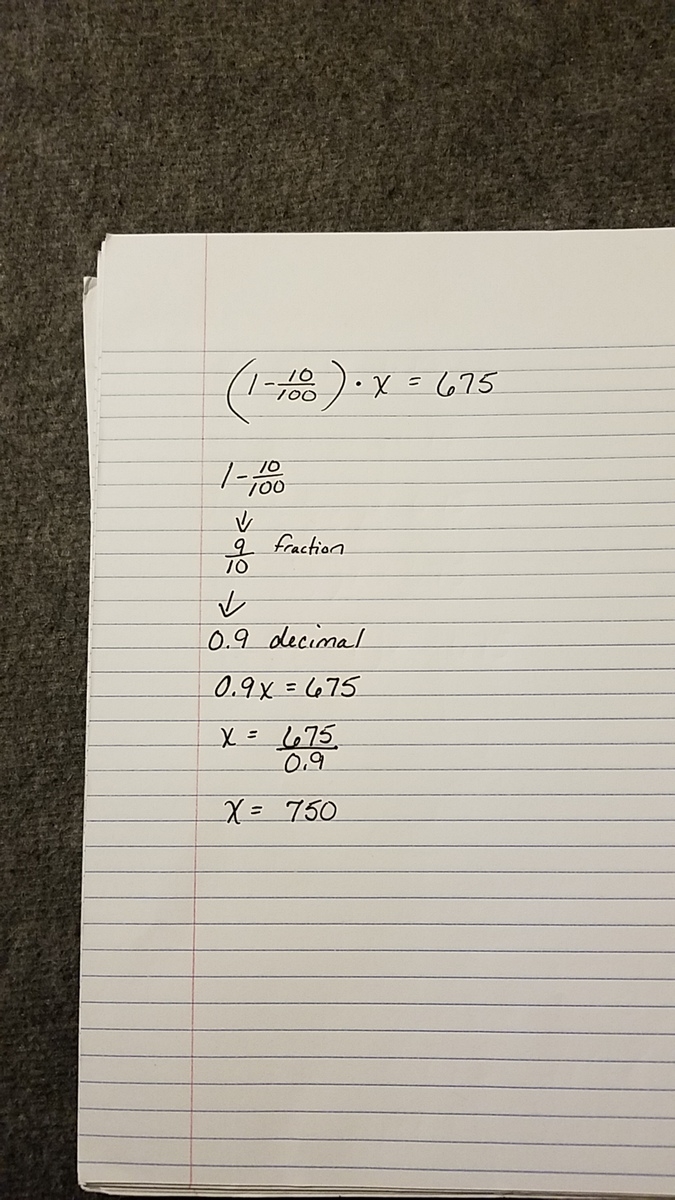 (1-10/100)·x = 675
1-10/100
↓
9/10 fraction
↓
0.9 decimal
0.9x = 675
x = 675/0.9
x = 750